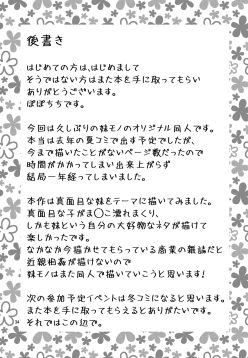 後書き
はじめての方は、はじめまして
そうではない方はまた本を手に取ってもらい
ありがとうございます。
ぽぽちちです。
今回は久しぶりの妹モノのオリジナル同人です。
本当は去年の夏コミで出す予定でしたが、
今まで描いたことがないページ数だったので
時間がかかってしまい出来上がらず
結局一年経ってしまいました。
本作は真面目な妹をテーマに描いてみました。
真面目な子がま◯こ濡れまくり、
しかも妹という自分の大好物なネタが描けて
楽しかったです。
なかなか今描かせてもらっている商業の雑誌だと
近親相姦が描けないので
妹モノはまた同人で描いていこうと思います!
次の参加予定イベントは冬コミになると思います。
また本を手に取ってもらえるとありがたいです。
それではこの辺で。